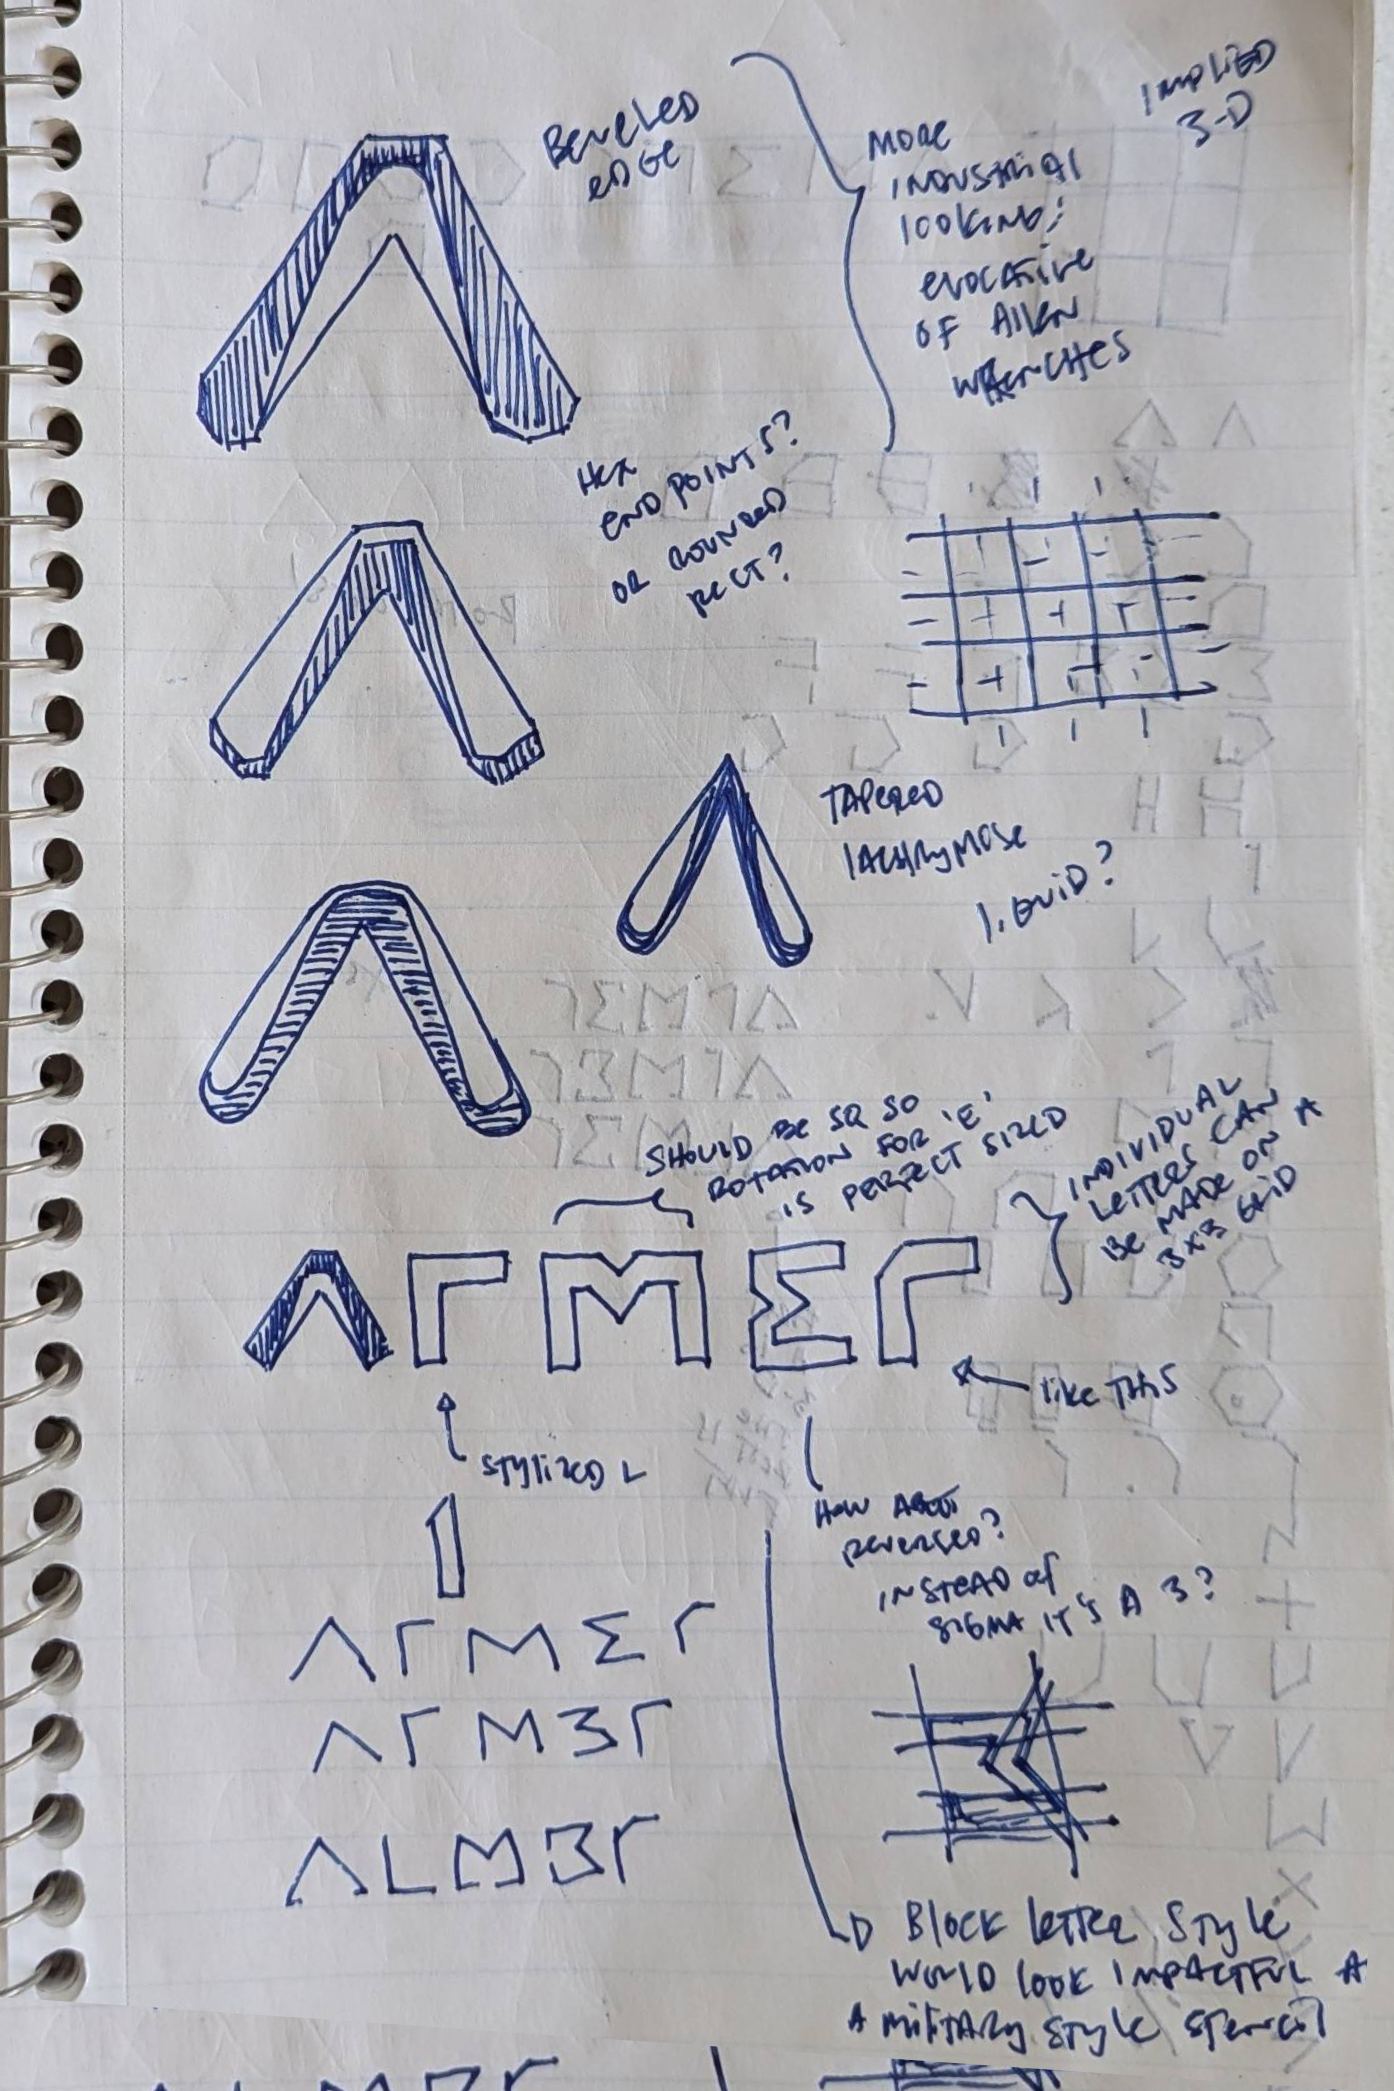 BEVELED
EDGE
MORE
INDUSTRIAL
LOOKING;
EVOCATIVE
OF ALLEN
WRENCHES
IMPLIED
3-D
HEX
END POINTS?
OR ROUNDED
RECT?
TAPERED
LACHRYMOSE
LIQUID?
SHOULD BE SQ SO
ROTATION FOR 'E'
IS PERFECT SIZED
INDIVIDUAL
LETTERS CAN
BE MADE ON A
3x3 GRID
ΛΓMΣΓ
LIKE THIS
STYLIZED L
HOW ABOUT
REVERSED?
INSTEAD OF
SIGMA IT'S A 3?
ΛΓMΣΓ
ΛΓM3Γ
ΛLM3Γ
BLOCK LETTER STYLE
WOULD LOOK IMPACTFUL A
A MILITARY STYLE STENCIL